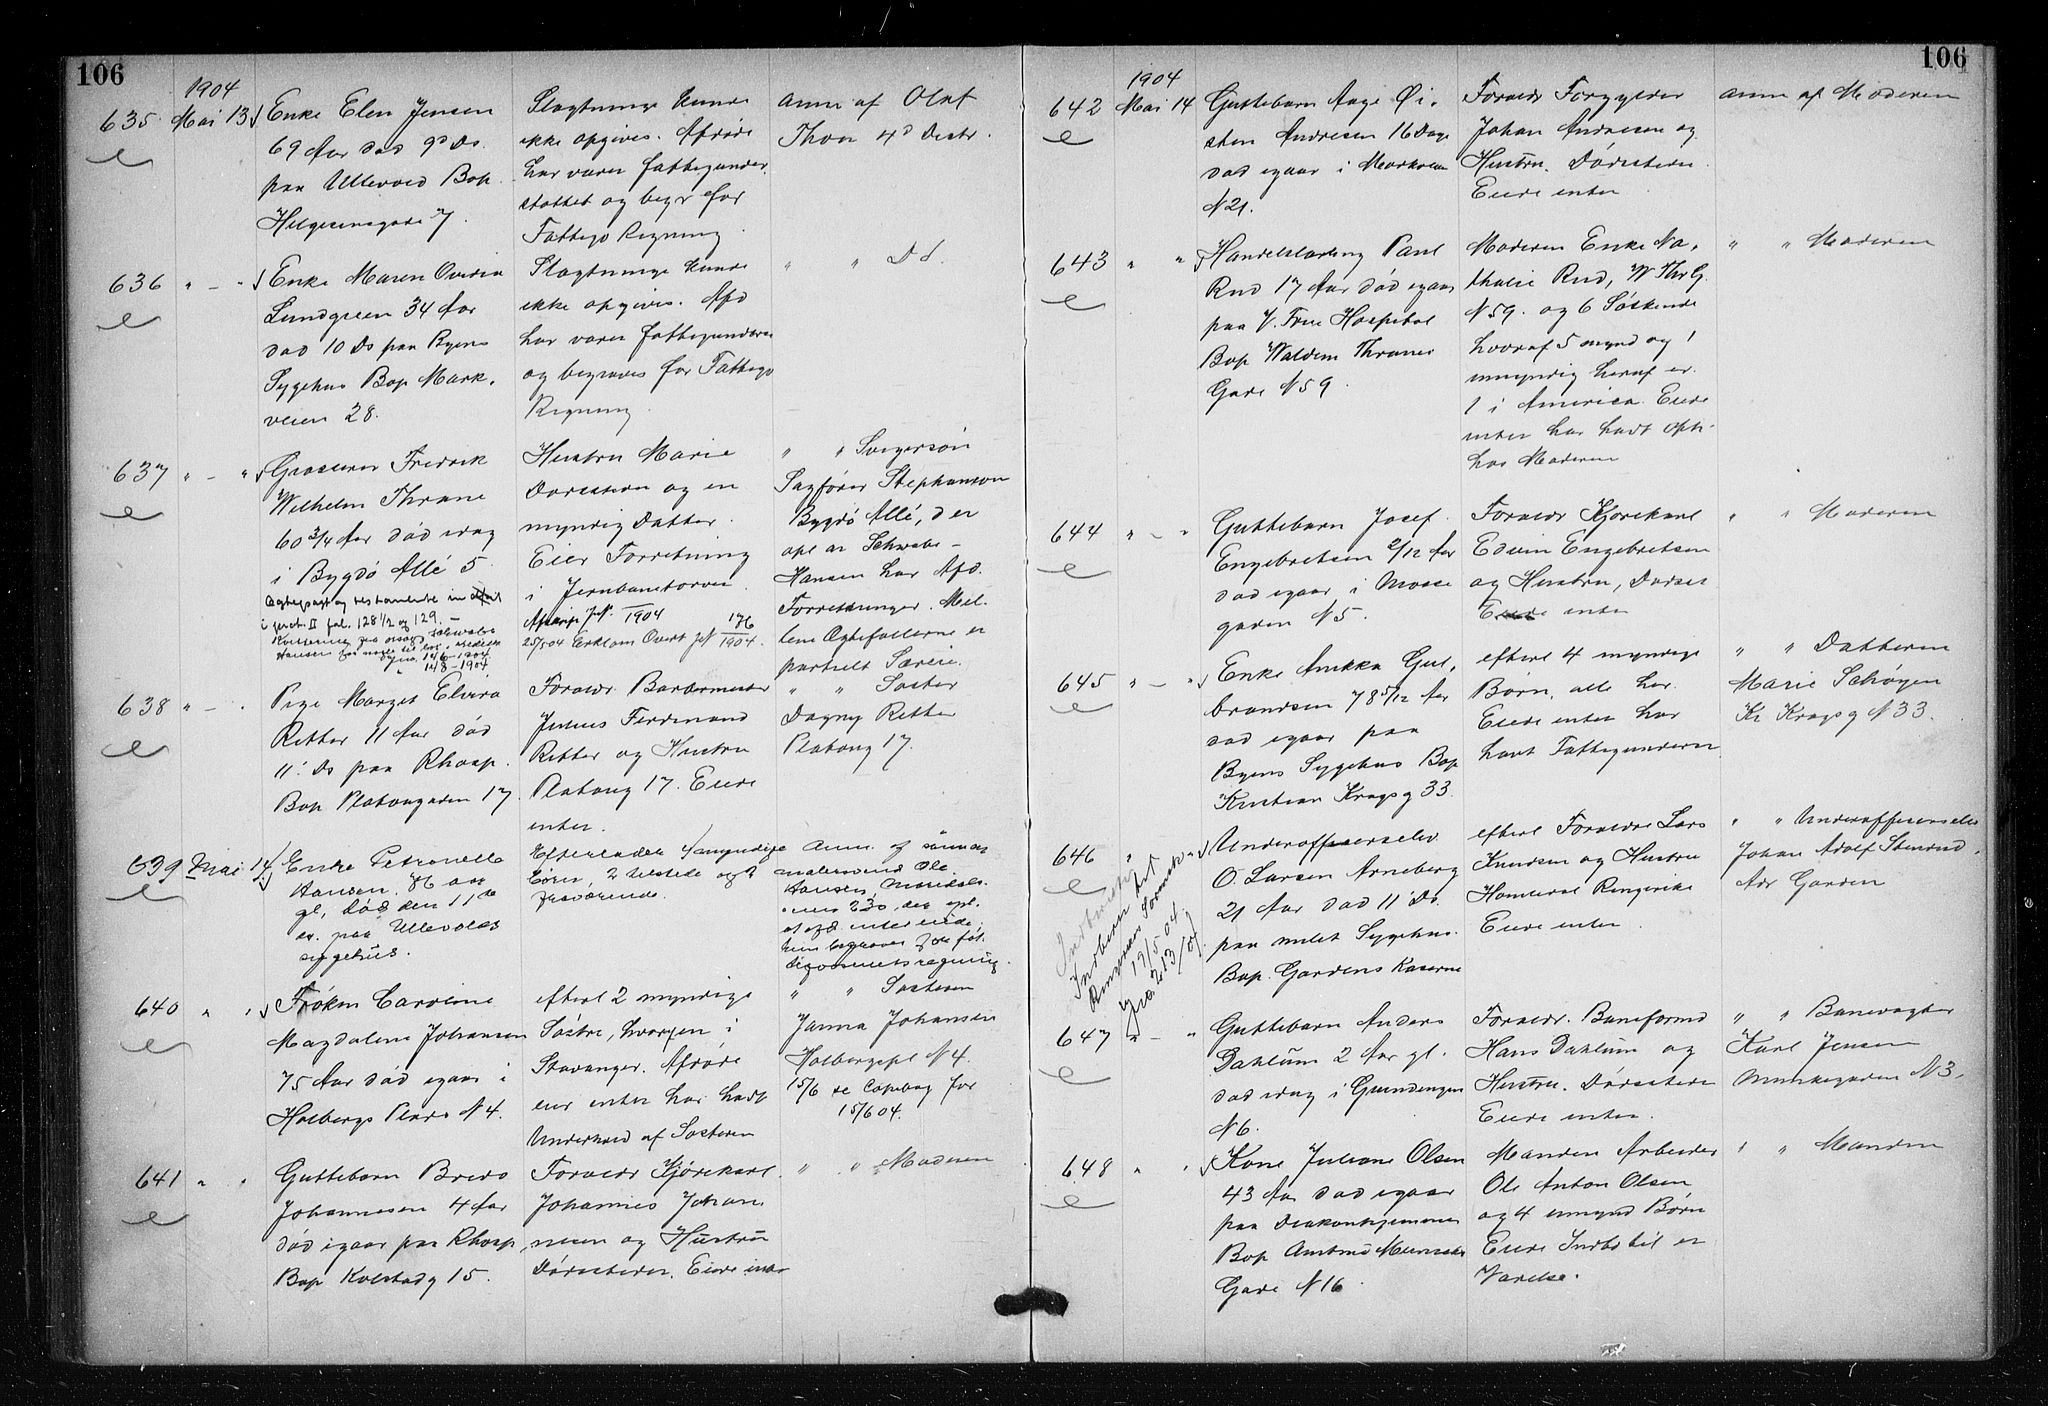 106
1904
635 Mai 13 Enke Elen Jensen
69 Aar død 9d Ds.
paa Ullevold Bop
Helgesensgade 7.
Slægtninge kunde
ikke opgives. Afdøde
har været fattigunder-
støttet og begr for
Fattigv Regning
Anm af Olaf
Thon 4d Distr.
636 " - " Enke Maren Ovedia
Lundgreen 34 Aar
død 10 Ds paa Byens
Sygehus Bop Mark-
veien 28.
Slægtninge kunde
ikke opgives. Afd
har været fattigunderst
og begraves for Fattigv
Regning
" " Do.
637 " - " Grosserer Fredrik
Wilhelm Thrane
60 3/4 Aar død idag
i Bygdö Allé 5
Hustru Marie
Dorsteds og en
myndig Datter.
Eier Forretning
i Jernbanetorvet
1904
25/5 04 Erklom Overt JN 176/1904.
" " Svigersön
Sagförer Stephanson
Bygdö Allé, der
opl at Schwabe-
Hansen har Afd.
Forretninger. Mel-
lem Ægtefollerne er
partielt Særeie.
638 " - " Pige Margit Elvira
Ritter 11 Aar död
11' Ds paa Rhosp.
Bop Platougaden 17
Forældr. Barbermester
Julius Ferdinand
Ritter og Hustru
Platoug 17. Eiede
intet.
" " Søster
Dagny Ritter
Platoug 17.
639 Mai 14 Enke Petronelle
Hansen, 86 aar
gl, död den 11te
ds. paa Ullevolds
sygehus.
Efterlader 4 myndige
börn, 2 tilstede og 2
fraværende.
Anm. af sönnen
malersvend Ole
Hansen, Maridals-
veien 230, der opl.
at afd. intet eiede.
hun begraves for fat-
tigvæsenets regning.
640 " " Frøken Caroline
Magdalene Johansen
75 Aar död igaar i
Holbergs Plads N 4.
efterl 2 myndige
Søstre, hvoraf en i
Stavanger. Afdøde
eier intet har havt
Underhold af Søsteren
" " Søsteren
Janna Johansen
Holbergspl N 4.
15/6 se Copibog for
15/6 04.
641 " " Guttebarn Bredo
Johannesen 4 Aar
död igaar paa Rhosp.
Bop Kolstadg 15.
Forældr Kjörekarl
Johannes Johan-
nesen og Hustru
Dørsteder. Eiede intet
" " Moderen
106
1904
642 Mai 14 Guttebarn Aage Øi-
sten Andresen 16 Dage
død igaar i Markveien
N 21.
Forældr Forgylder
Johan Andresen og
Hustru. Dørstedr
Eiede intet
Anm af Moderen
643 " " Handelslærling Paul
Rud 17 Aar død igaar
paa V. Frue Hospital
Bop Waldem Thranes
Gade N 59.
Moderen Enke Na-
thalie Rud, W Thr G.
N 59. og 6 Söskende
hvoraf 5 mynd og 1
umyndig heraf er
1 i America. Eiede
intet har havt Oph.
hos Moderen
" " Moderen
644 " - " Guttebarn Josef
Engebretsen 2/12 Aar
død igaar i Mosse
gaden N 5.
Forældr Kjörekarl
Edvin Engebretsen
og Hustru, Dørsted
Eiede intet
" " Moderen
645 " - " Enke Annikka Gul-
brandsen 78 5/12 Aar
død igaar paa
Byens Sygehus Bop
Kristian Kragsg 33.
efterl 4 myndige
Börn, alle her.
Eiede intet har
havt Fattigunderst
" " Datteren
Marie Schøyen
Kr Kragsg N 33.
646 " " Underofficerselev
O. Larsen Arneberg
21 Aar død 11' Ds.
paa milit Sygehus.
Bop. Gardens Kaserne
efterl Forældre Lars
Knudsen og Hustru
Ringerike
Eiede intet
" " Underofficerselev
Johan Adolf Stensrud,
Adr Garden
Indberettet
Indberet til
Ringerikes Sorenskr
19/5 04.
647 " - " Guttebarn Anders
Dahlüm 2 Aar gl.
död idag i Grændsengen
N 6.
Forældr. Baneformd
Hans Dahlüm og
Hustru. Dørsteder
Eiede intet.
" " Banevogter
Karl Jensen
Munkegaden N 3.
648 " " Kone Juliane Olsen
43 Aar død igaar
paa Diakonhjemmet
Bop Amtmd Meinichs
Gade N 16
Manden Arbeider
Ole Anton Olsen
og 4 umynd Børn
Eiede Indbo til et
Værelse.
" " Manden